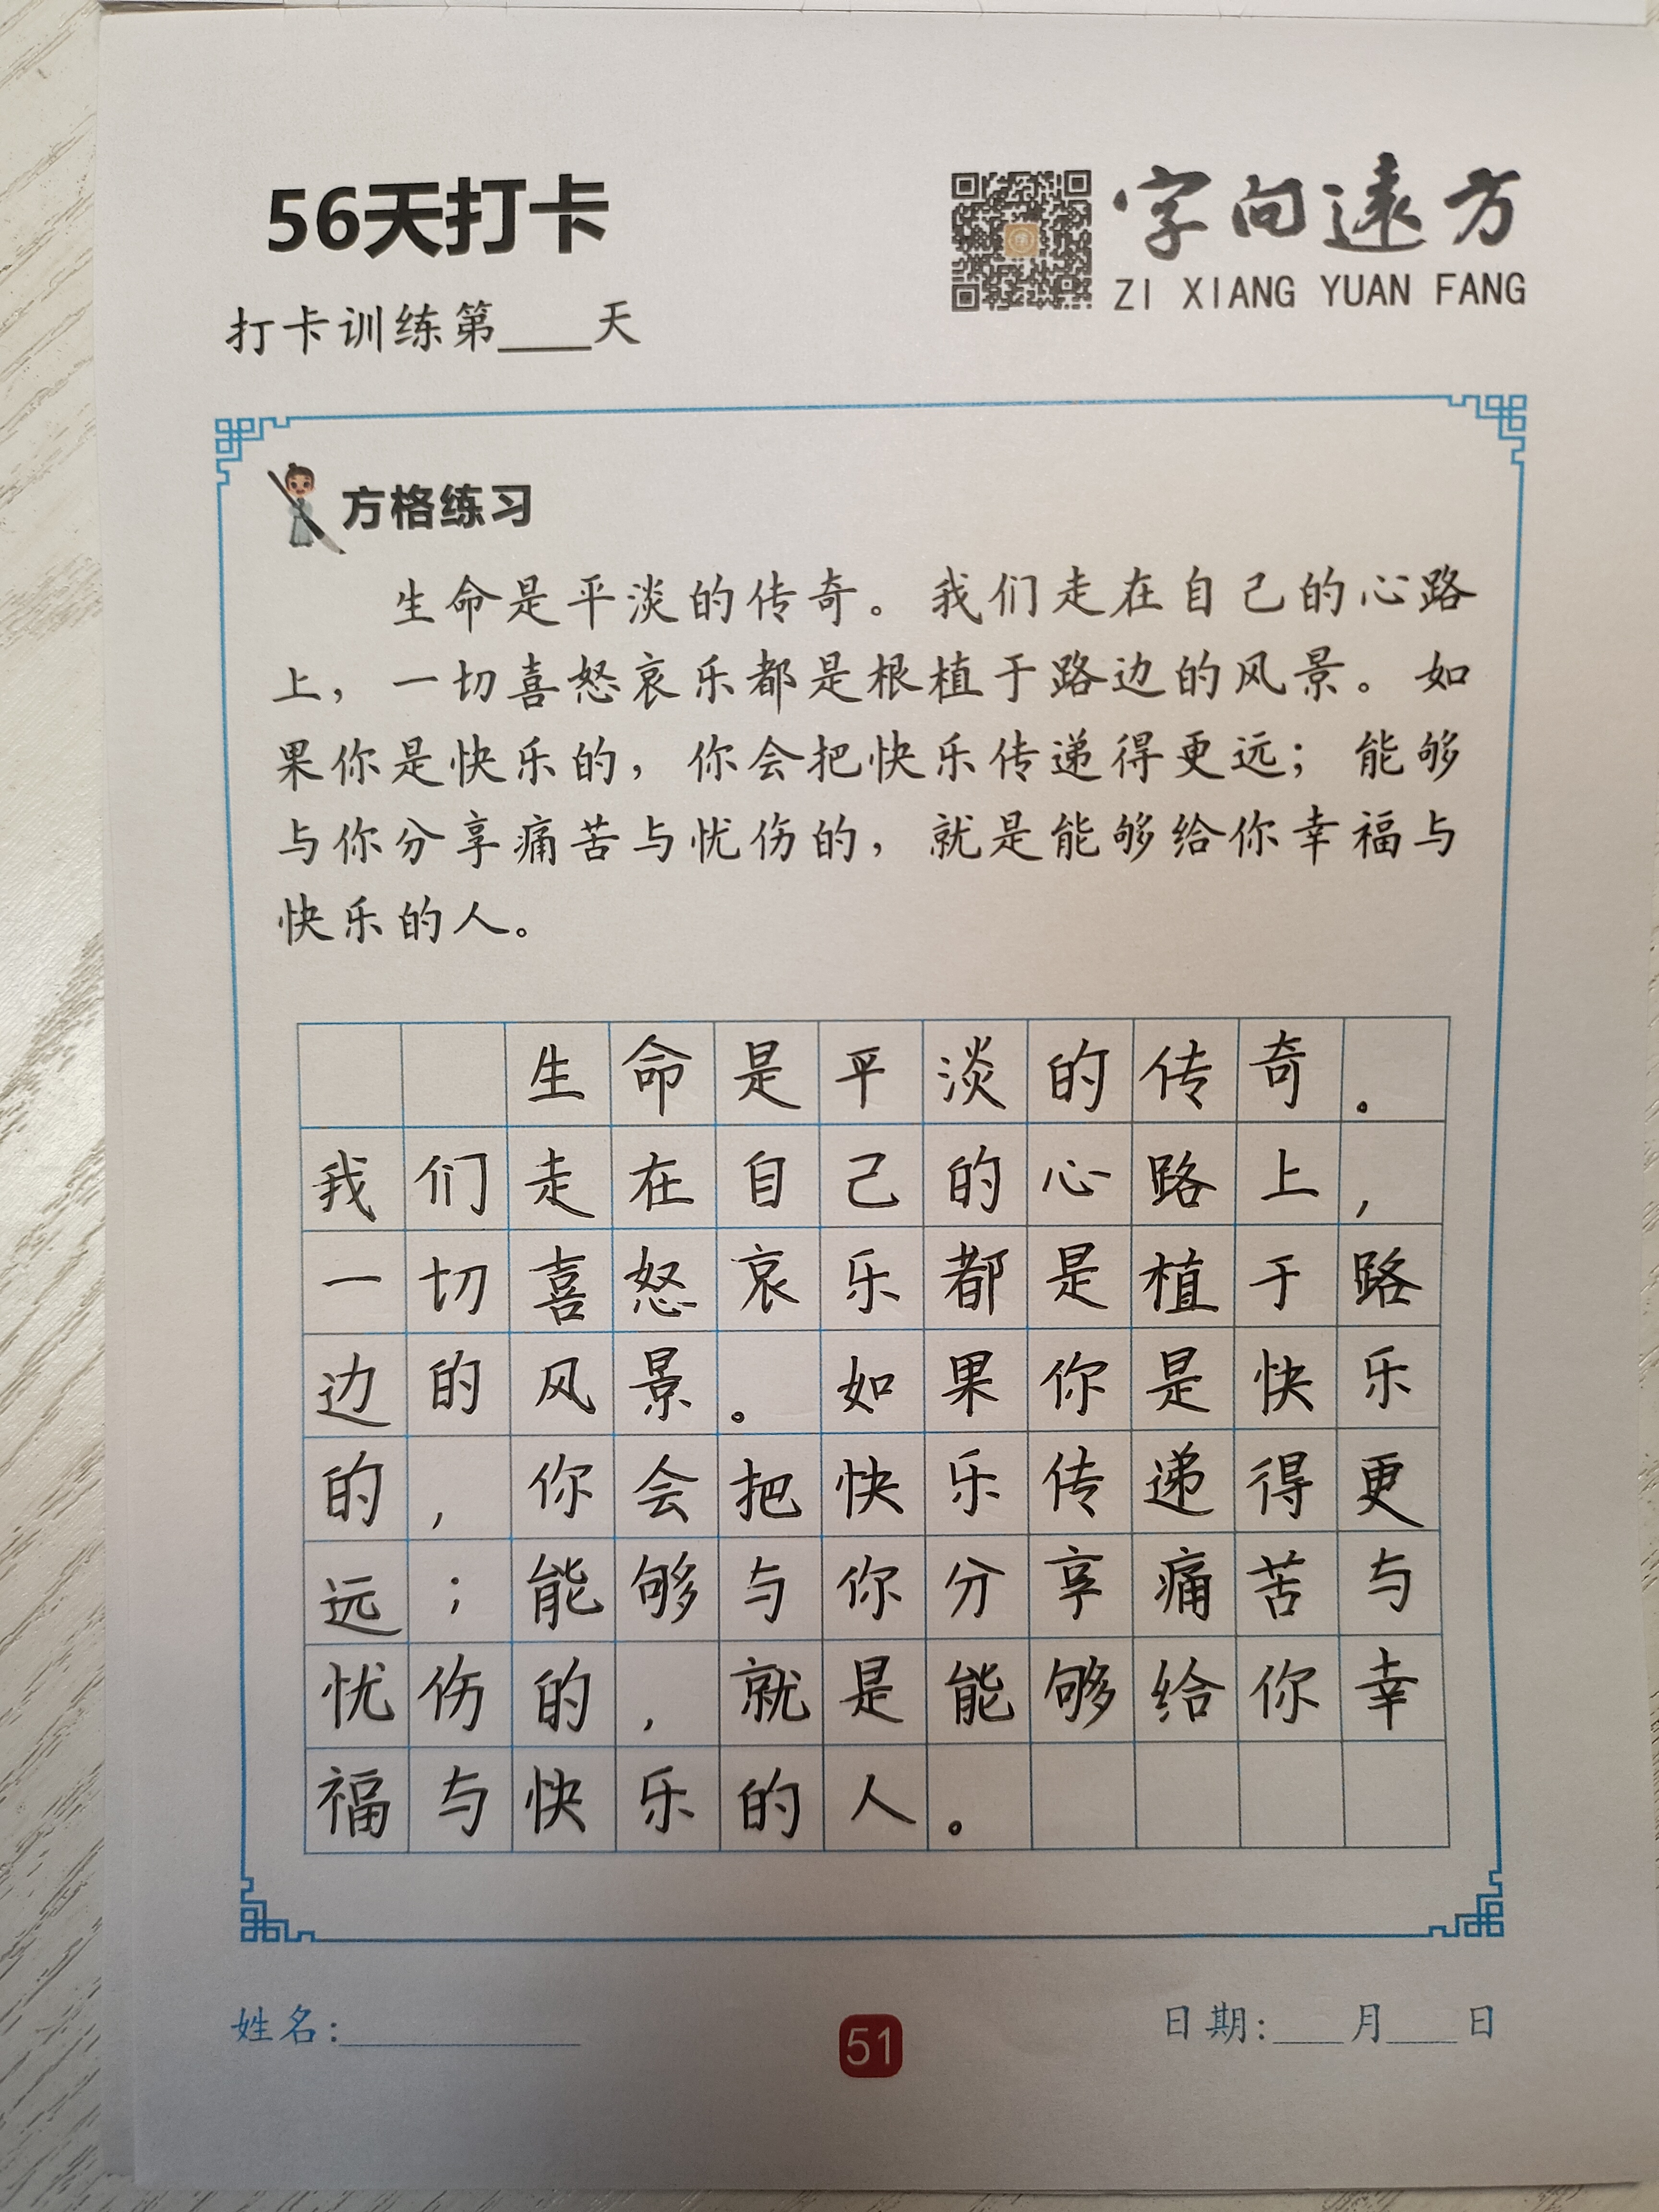 56天打卡
字向遠方
ZI XIANG YUAN FANG
打卡训练第____天
方格练习
生命是平淡的传奇。我们走在自己的心路
上，一切喜怒哀乐都是根植于路边的风景。如
果你是快乐的，你会把快乐传递得更远；能够
与你分享痛苦与忧伤的，就是能够给你幸福与
快乐的人。
生命是平淡的传奇。
我们走在自己的心路上，
一切喜怒哀乐都是植于路
边的风景。如果你是快乐
的，你会把快乐传递得更
远；能够与你分享痛苦与
忧伤的，就是能够给你幸
福与快乐的人。
姓名:__________
51
日期:___月___日